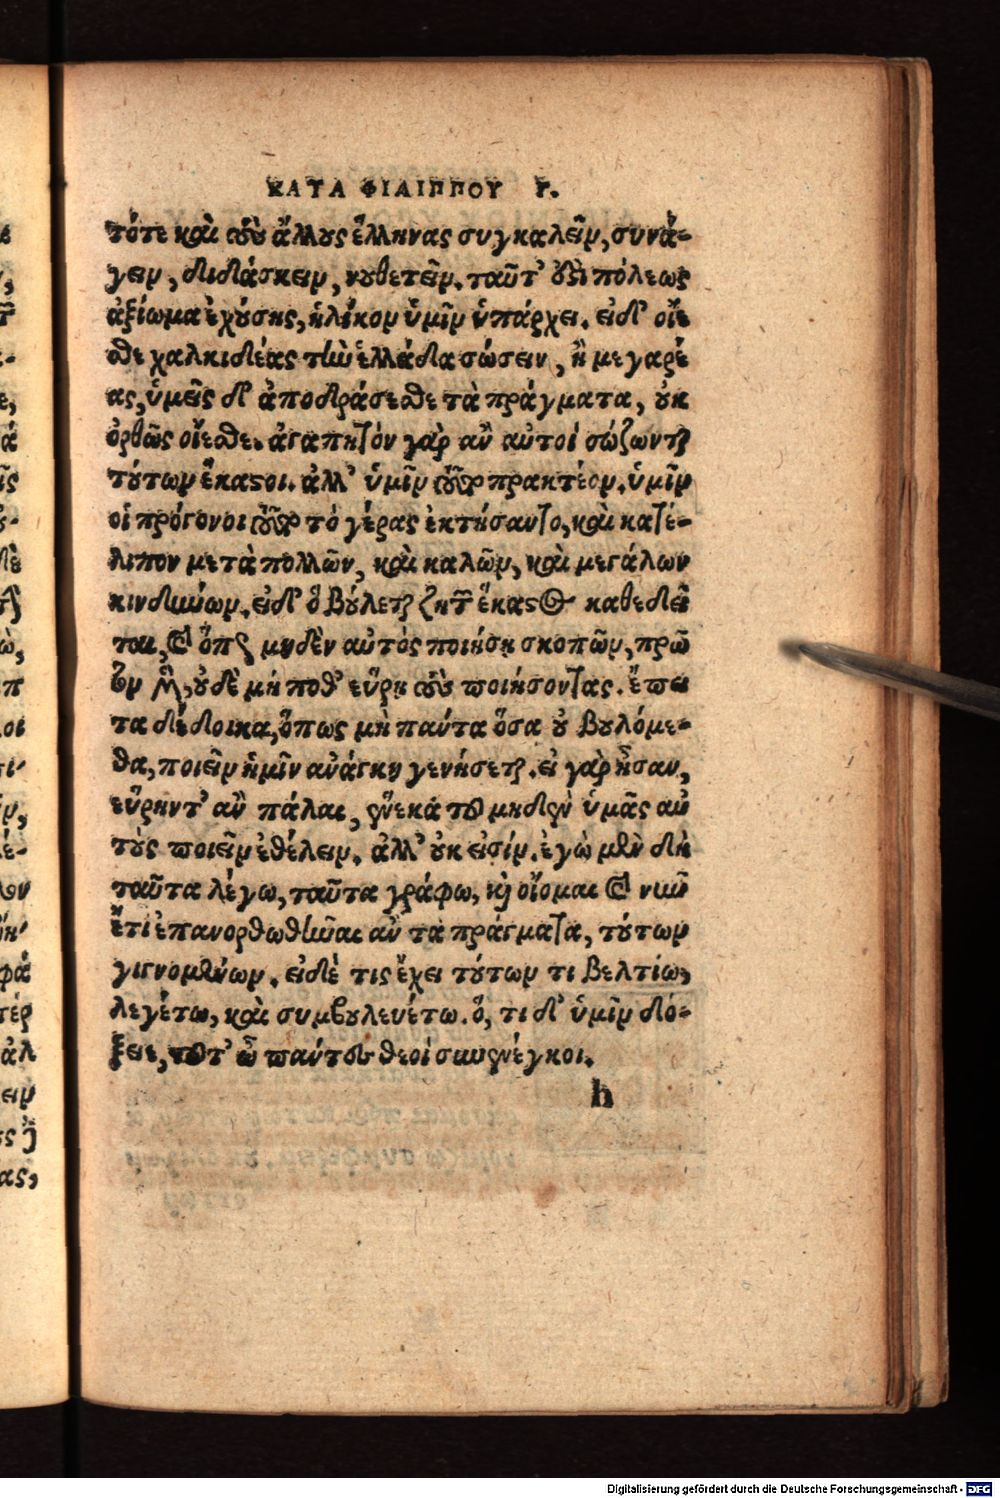 ΚΑΤΑ ΦΙΛΙΠΠΟΥ Γ.
τότε καὶ τοὺς ἄλλους ἕλληνας συγκαλεῖν, συνά-
γειν, διδάσκειν, νουθετεῖν. ταῦτ' ἐστὶ πόλεως
ἀξίωμα ἐχούσης, ἡλίκον ὑμῖν ὑπάρχει. εἰ δ' οἴε
σθε χαλκιδέας τὴν ἑλλάδα σώσειν, ἢ μεγαρέ
ας, ὑμεῖς δ' ἀποδράσεσθε τὰ πράγματα, οὐκ
ὀρθῶς οἴεσθε. ἀγαπητὸν γὰρ ἂν αὐτοὶ σώζωνται
τούτων ἕκαστοι. ἀλλ' ὑμῖν τοῦτο πρακτέον. ὑμῖν
οἱ πρόγονοι τοῦτο τὸ γέρας ἐκτήσαντο, καὶ κατέ-
λιπον μετὰ πολλῶν, καὶ καλῶν, καὶ μεγάλων
κινδύνων. εἰ δ' ὃ βούλεται ζητῶν ἕκαστος καθεδεῖ
ται, καὶ ὅπως μηδὲν αὐτὸς ποιήσῃ σκοπῶν, πρῶ
τον μὲν, οὐδὲ μή ποθ' εὕρῃ τοὺς ποιήσοντας. ἔπει
τα δέδοικα, ὅπως μὴ πάντα ὅσα οὐ βουλόμε-
θα, ποιεῖν ἡμῖν ἀνάγκη γενήσεται. εἰ γὰρ ἦσαν,
εὕρηντ' ἂν πάλαι, ἕνεκά του μηδὲν ὑμᾶς αὐ
τοὺς ποιεῖν ἐθέλειν. ἀλλ' οὐκ εἰσίν. ἐγὼ μὲν δὴ
ταῦτα λέγω, ταῦτα γράφω, καὶ οἴομαι καὶ νῦν
ἔτι ἐπανορθωθῆναι ἂν τὰ πράγματα, τούτων
γιγνομένων. εἰ δέ τις ἔχει τούτων τι βελτίω,
λεγέτω, καὶ συμβουλευέτω. ὅ, τι δ' ὑμῖν δό-
ξει, τοῦτ' ὦ πάντες θεοὶ συνενέγκοι.
h
Digitalisierung gefördert durch die Deutsche Forschungsgemeinschaft - DFG